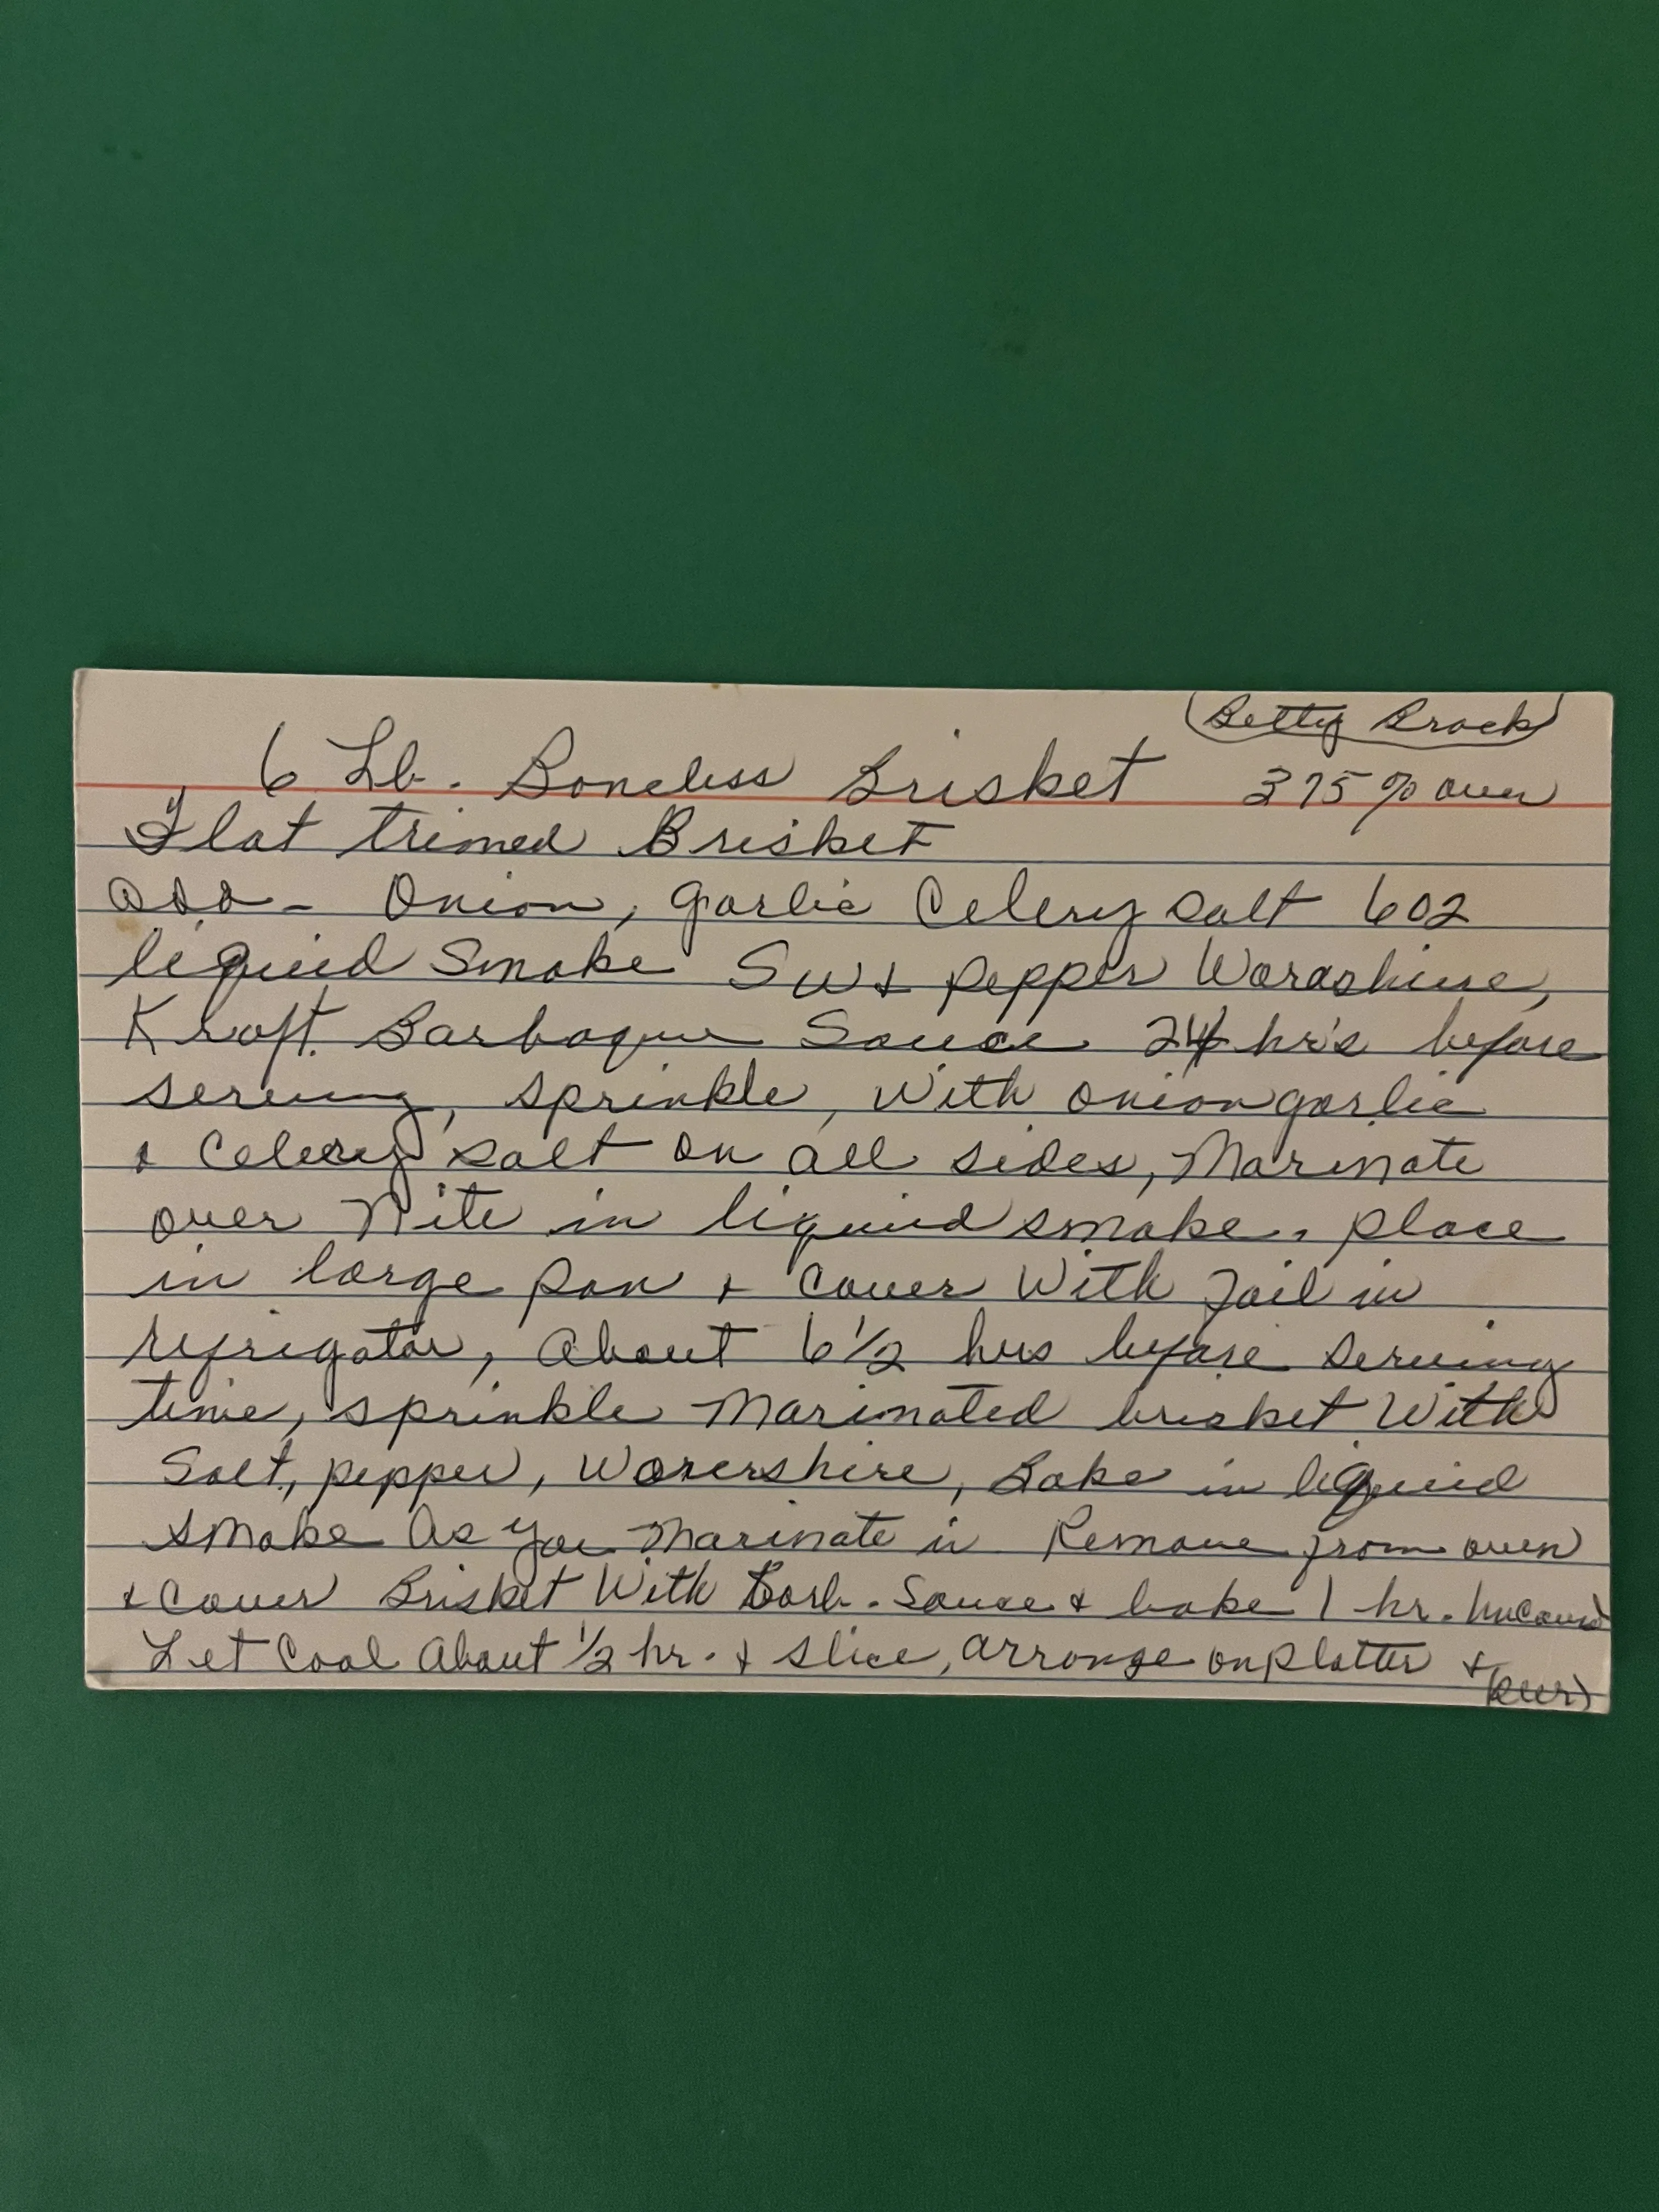 (Betty Brock)
6 Lb. Boneless Brisket 375% oven
Flat trimed Brisket
add - Onion, garlic Celery salt 6 oz
liquid Smoke S & pepper
Kraft Barbaque Sauce 24 hr's before
serving, sprinkle, with onion garlic
& Celery salt on all sides, Marinate
over Nite in liquid smoke. place
in large pan & cover With foil in
refrigator, About 6 1/2 hrs before serving
time, sprinkle Marinated brisket With
Salt, pepper, Worershire, Bake in liquid
smoke As you Marinate in Remove from oven
& cover Brisket With Barb. Sauce & bake 1 hr.
Let Cool About 1/2 hr. & slice, arrange on Platter &
(over)